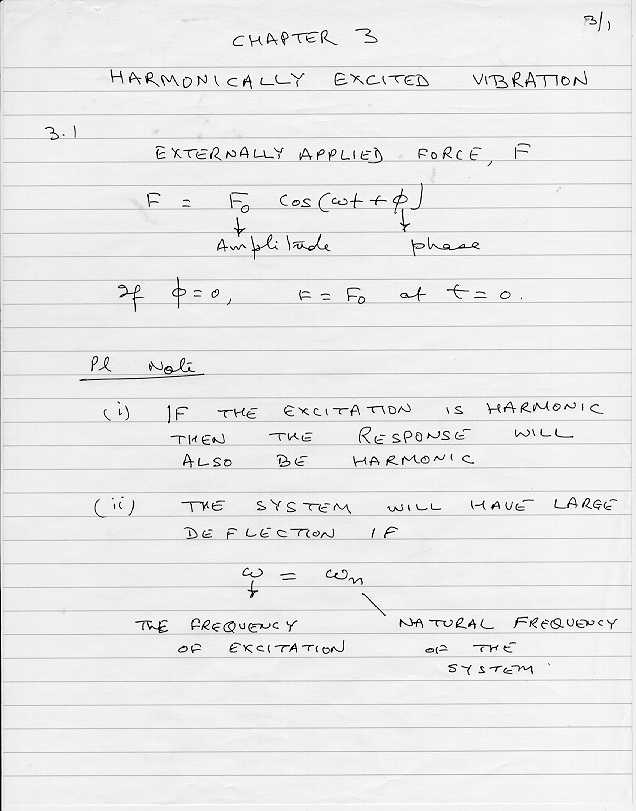 3/1
CHAPTER 3
HARMONICALLY EXCITED VIBRATION
3.1
EXTERNALLY APPLIED FORCE, F
F = F₀ cos(ωt + ϕ)
Amplitude phase
If ϕ = 0, F = F₀ at t = 0.
Pl Note
(i) IF THE EXCITATION IS HARMONIC
THEN THE RESPONSE WILL
ALSO BE HARMONIC
(ii) THE SYSTEM WILL HAVE LARGE
DEFLECTION IF
ω = ωn
THE FREQUENCY NATURAL FREQUENCY
OF EXCITATION OF THE
SYSTEM